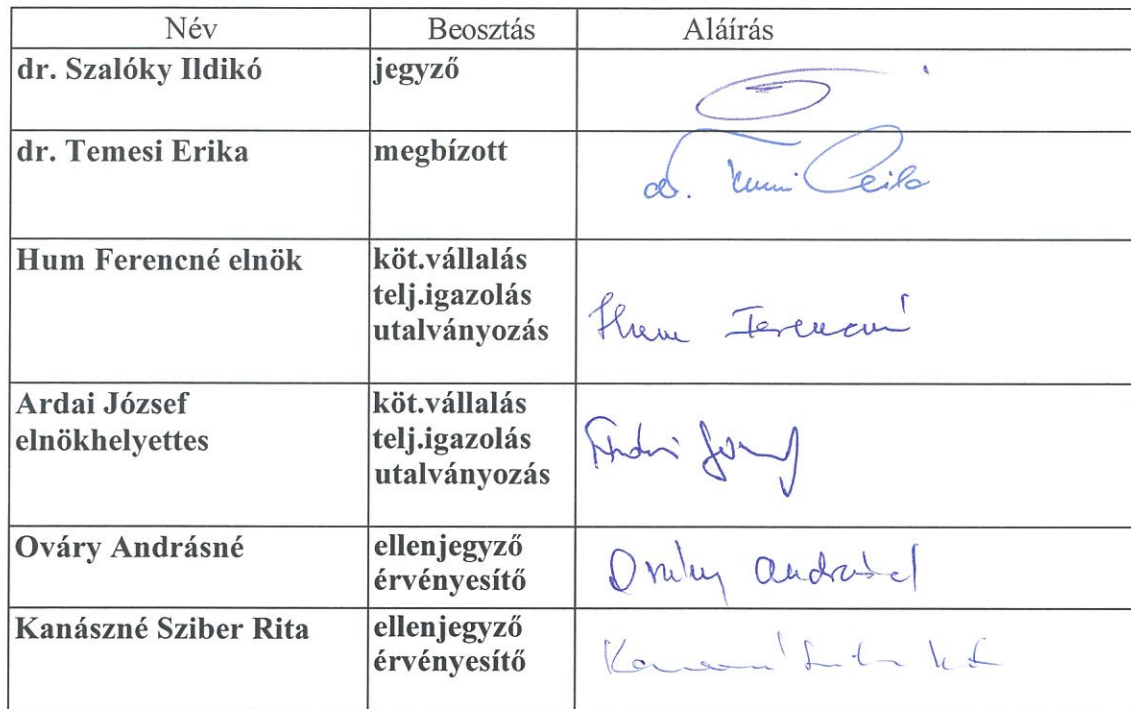 Név Beosztás Aláírás
dr. Szalóky Ildikó jegyző
dr. Temesi Erika megbízott
dr.
Hum Ferencné elnök köt.vállalás
telj.igazolás
utalványozás
Hum Ferencné
Ardai József köt.vállalás
elnökhelyettes telj.igazolás
utalványozás
Ardai József
Ováry Andrásné ellenjegyző
érvényesítő
Ováry Andrásné
Kanászné Sziber Rita ellenjegyző
érvényesítő